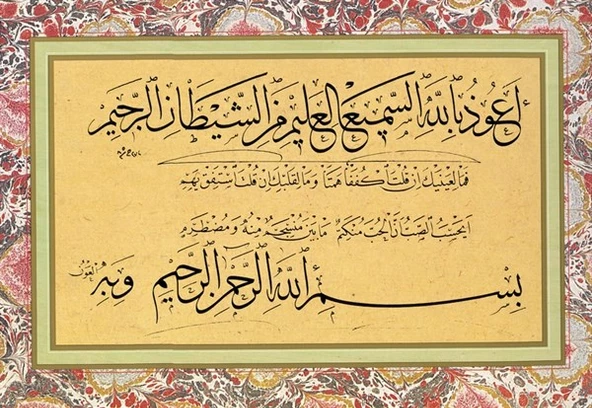 أعوذ بالله السميع العليم من الشيطان الرجيم
فما لعينيك إن قلت اكففا همتا وما لقلبك إن قلت استفق يهم
أيحسب الصب أن الحب منكتم ما بين منسجم منه ومضطرم
بسم الله الرحمن الرحيم وبه العون